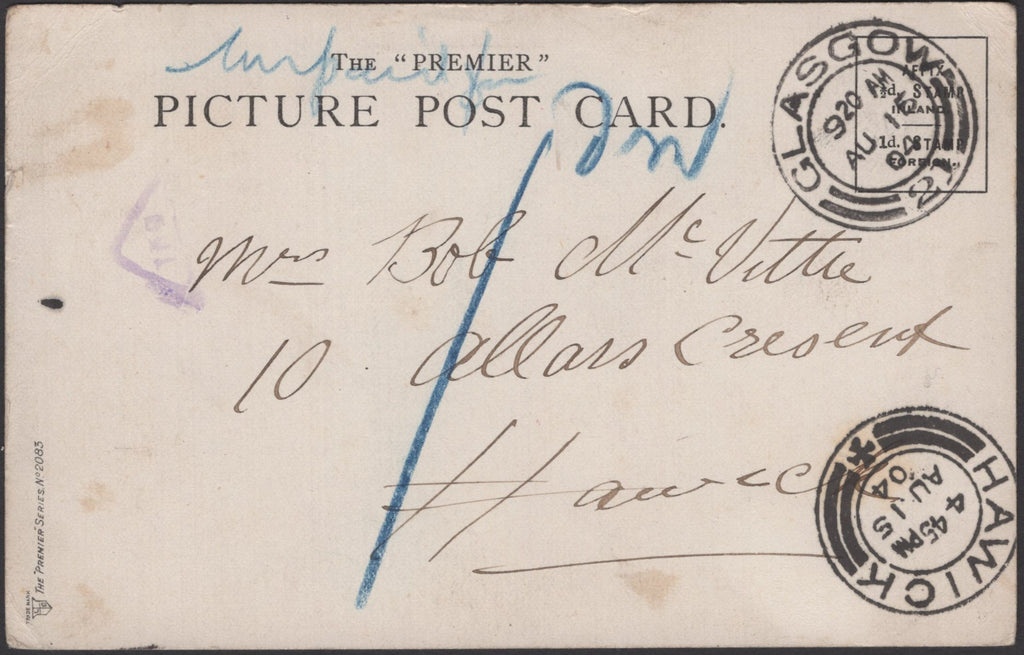 unpaid
The "PREMIER"
PICTURE POST CARD.
GLASGOW
9 20 AM
AU 12
04
AFFIX
½d. STAMP
INLAND
1d. STAMP
FOREIGN.
Mrs Bob McVittie
10 Allars Cresent
Hawick
HAWICK
4 45 PM
AU 15
04
THE "PREMIER" SERIES. No 2083
TRADE MARK